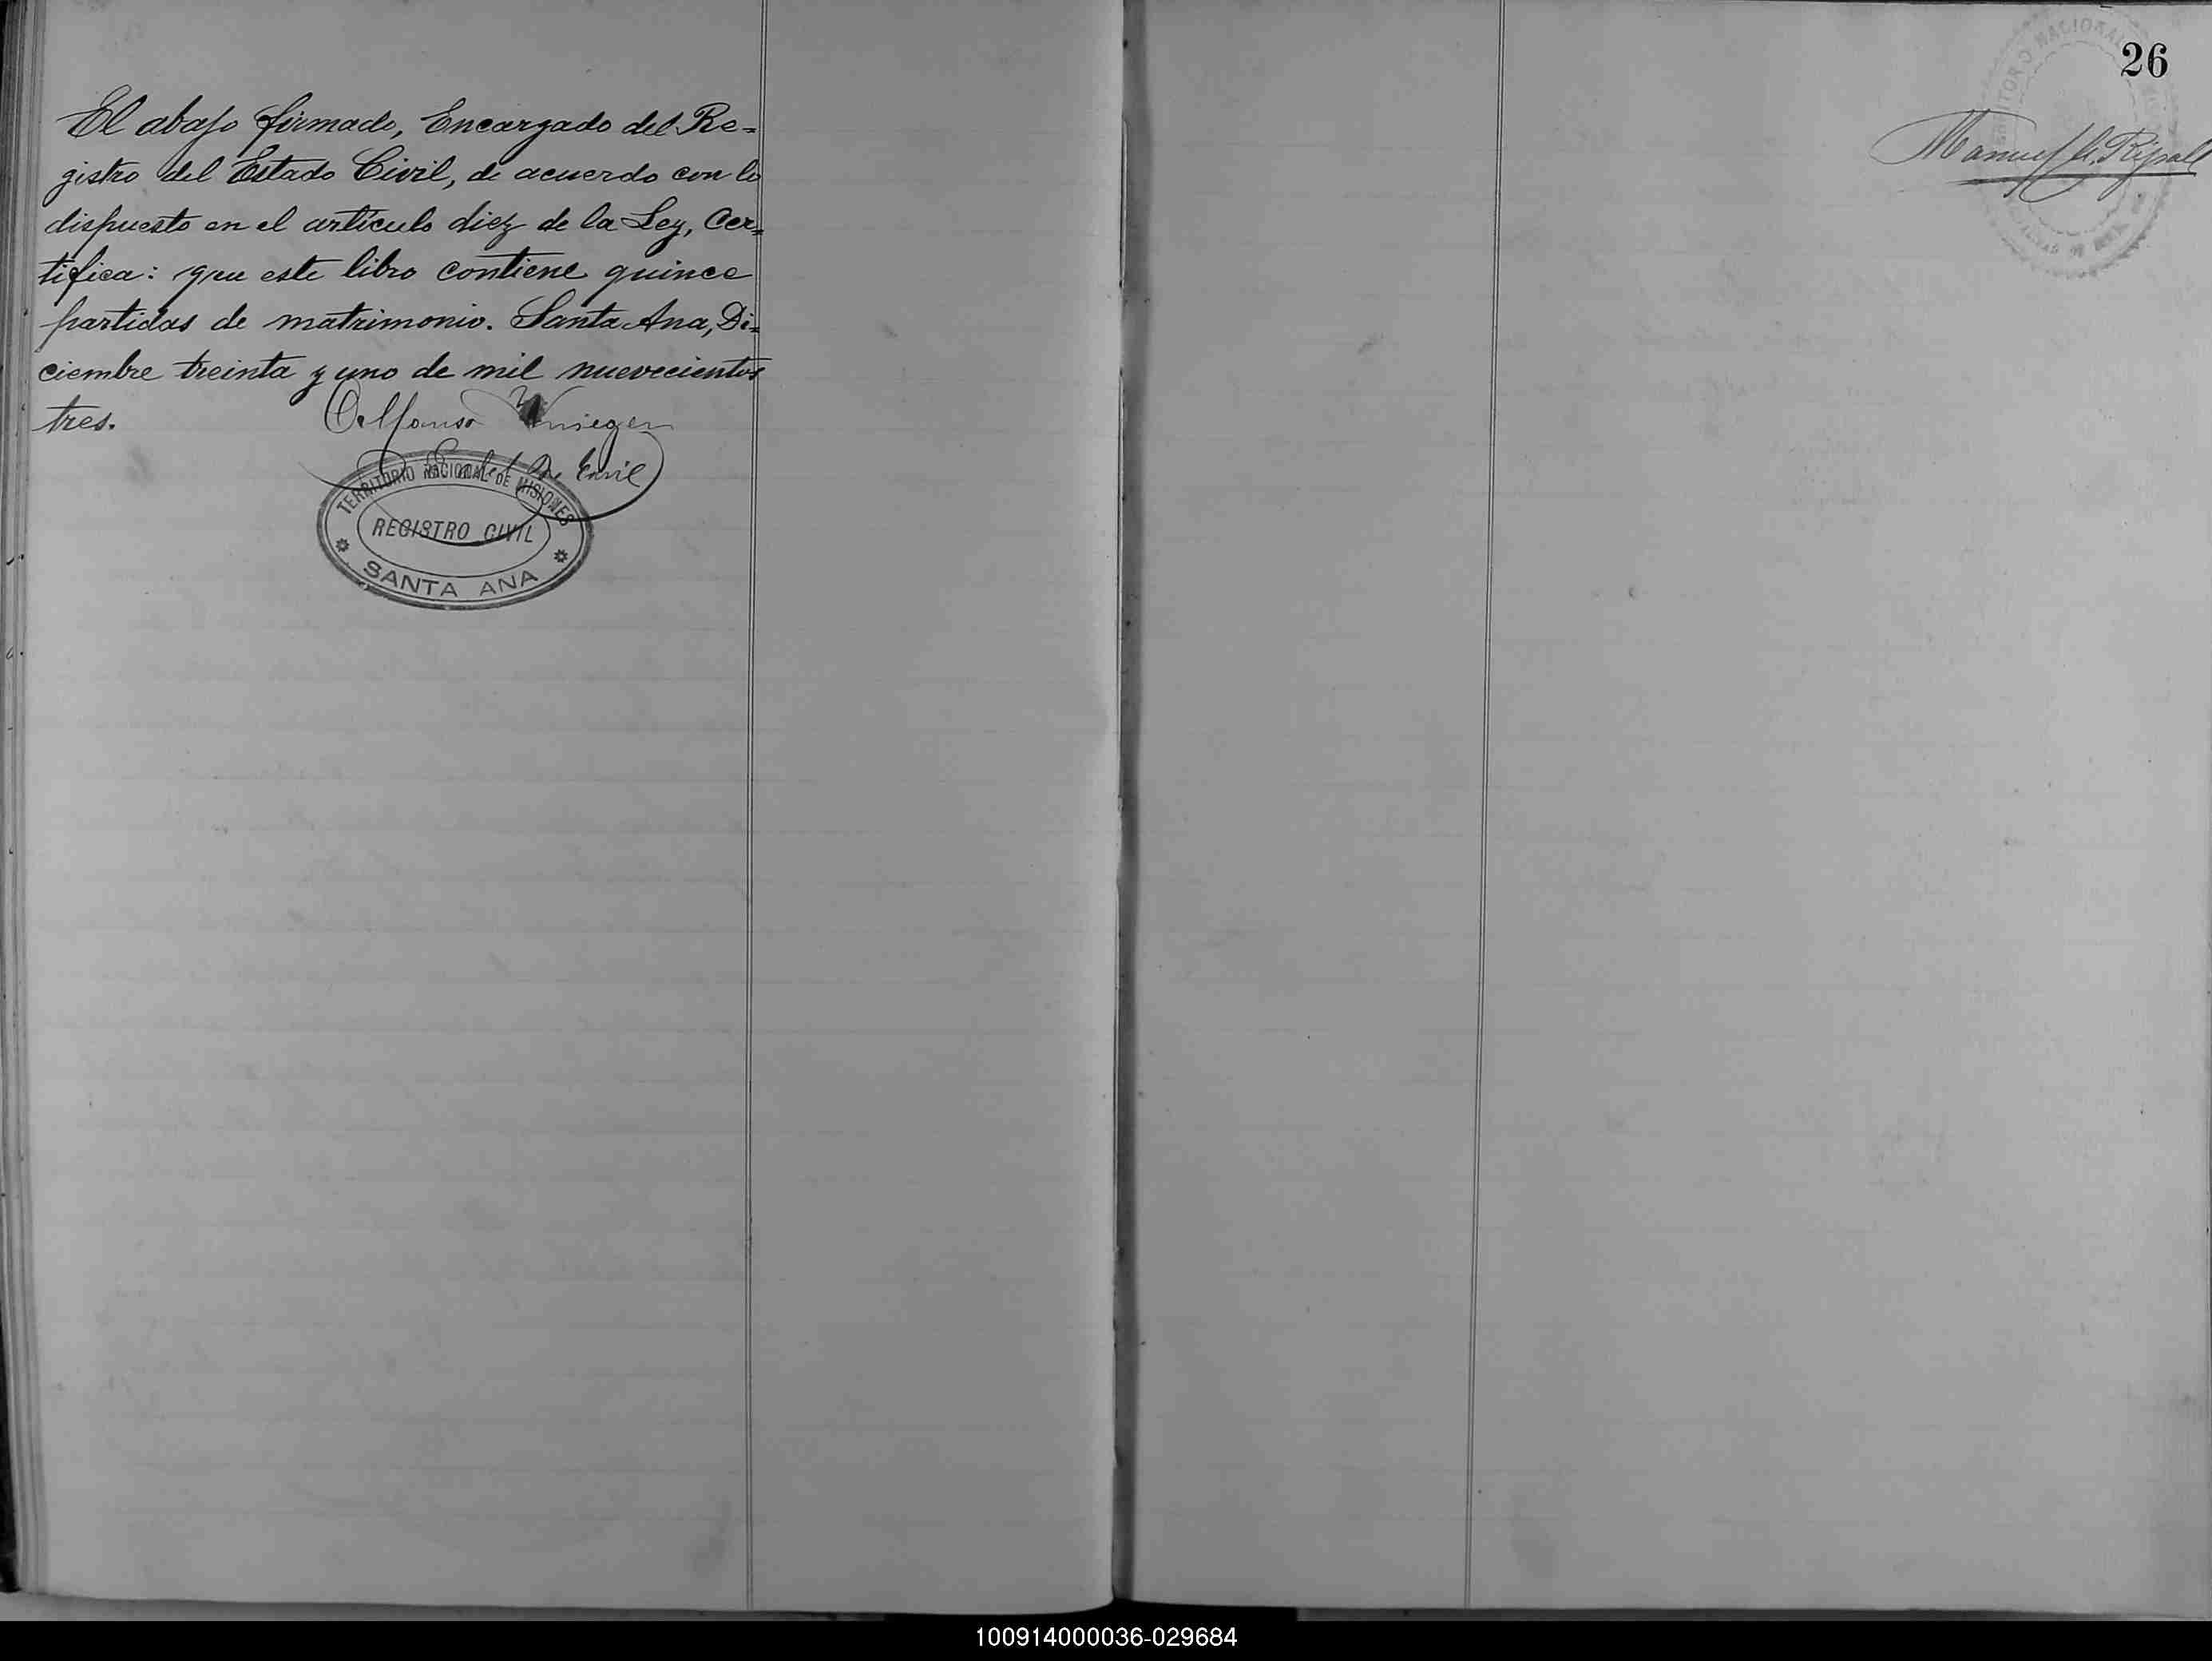 El abajo firmado, Encargado del Re=
gistro del Estado Civil, de acuerdo con lo
dispuesto en el artículo diez de la Ley, Cer=
tifica: que este libro contiene quince
partidas de matrimonio. Santa Ana, Di=
ciembre treinta y uno de mil nuevecientos
tres.
TERRITORIO NACIONAL DE MISIONES
REGISTRO CIVIL
SANTA ANA
26
Manuel
100914000036-029684